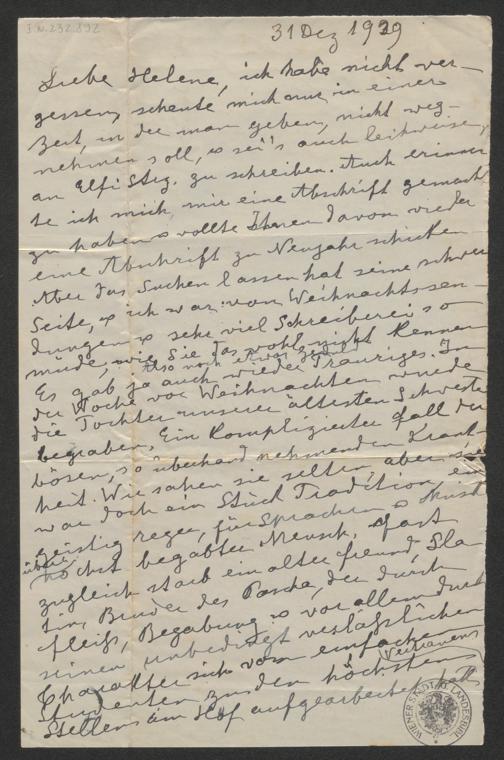 I.N. 232.892
31 Dez 1929
Liebe Helene, ich habe nicht ver-
gessen, scheute mich nur in einer
Zeit, in der man geben, nicht weg-
nehmen soll, u sei's auch leihweise,
an Elfi Stzg. zu schreiben. Auch erinner
te ich mich, mir eine Abschrift gemacht
zu haben u wollte Ihnen davon wieder
eine Abschrift zu Neujahr schicken
Aber das Suchen lassen hat seine schwer
Seite, u ich war von Weihnachtssen-
dungen u sehr viel Schreiberei so
müde, wie Sie das wohl nicht kennen
Also noch etwas Geduld
Es gab ja auch wieder Trauriges. In
der Woche vor Weihnachten wurde
die Tochter unserer ältesten Schwester
begraben. Ein komplizierter Fall der
bösen, so überhand nehmenden Krank-
heit. Wir sahen sie selten, aber sie
war doch ein Stück Tradition, ein
geistig reger, für Sprachen u Musik
höchst begabter Mensch. Fast
zugleich starb ein alter Freund, Sla
tin, Bruder des Pascha, der durch
Fleiß, Begabung u vor allem durch
seinen unbedingt verläßlichen
Charakter sich vom einfachen
Studenten zu den höchsten
Vertrauens
Stellen am Hof aufgearbeitet hatte
WIENER STADT- U. LANDESBIBL.